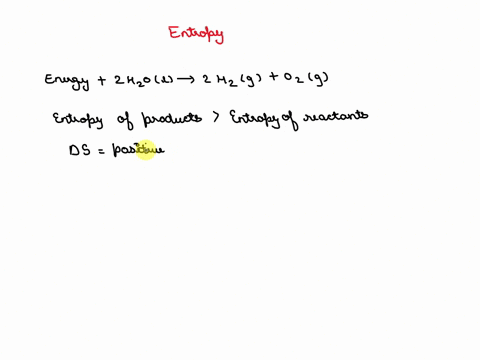 Entropy
Energy + 2H₂O(l) → 2H₂(g) + O₂(g)
Entropy of products > Entropy of reactants
DS = positive